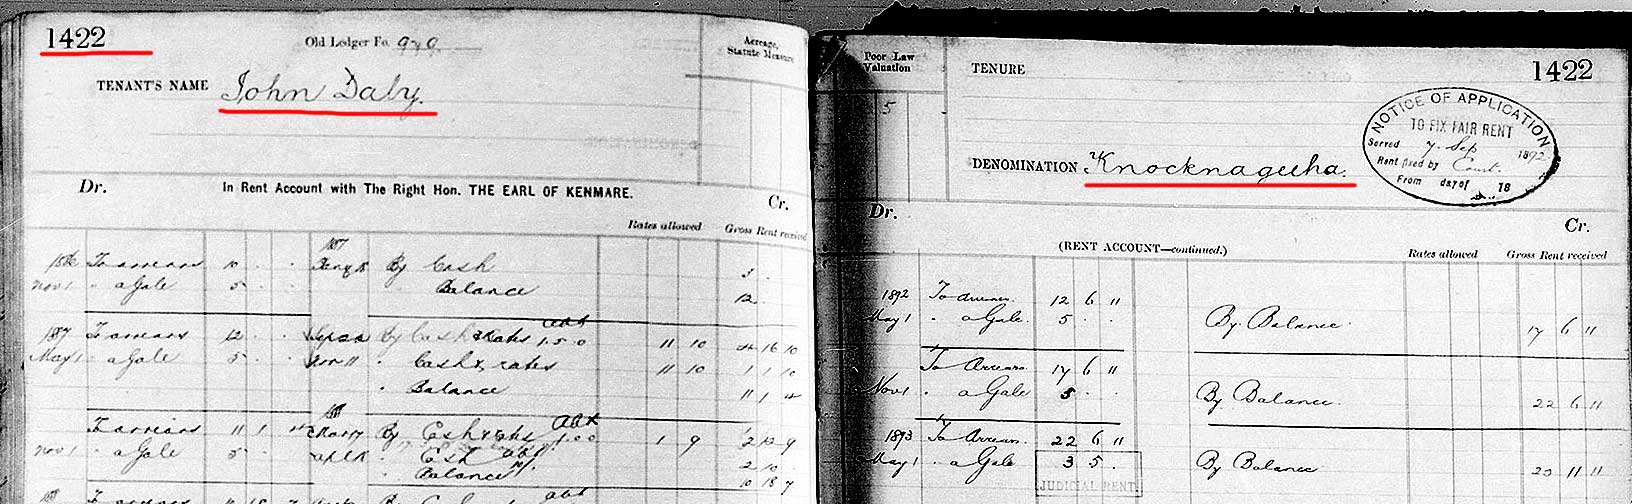 1422
Old Ledger Fo.
Acreage,
Statute Measure
TENANT'S NAME John Daly.
Dr. In Rent Account with The Right Hon. THE EARL OF KENMARE. Cr.
Rates allowed Gross Rent received
1886 To arrears 10 By Cash 3
Nov 1 " a Gale 5 Balance 12
1887 To arrears 12 By Cash & Rates abt 1.5.0 11 10 4 16 10
May 1 " a Gale 5 " Cash & rates 11 10 1 1 10
" Balance 11 1 4
To arrears 11 1 4 By Cash & rates abt 1.0.0 1 9 2 12 9
Nov 1 " a Gale 5 " Cash abt 2 10
Balance 10 18 7
Poor Law
Valuation
5
TENURE
1422
NOTICE OF APPLICATION
TO FIX FAIR RENT
Served 7 Sep 1892
Rent fixed by Court.
From day of 18
DENOMINATION Knocknageeha.
Dr. Cr.
(RENT ACCOUNT—continued.)
Rates allowed Gross Rent received
1892 To arrears 12 6 "
May 1 " a Gale 5 . . By Balance 17 6 "
To Arrears 17 6 "
Nov 1 " a Gale 5 . . By Balance 22 6 "
1893 To Arrears 22 6 "
May 1 " a Gale 3 5 . By Balance 25 11 "
JUDICIAL RENT